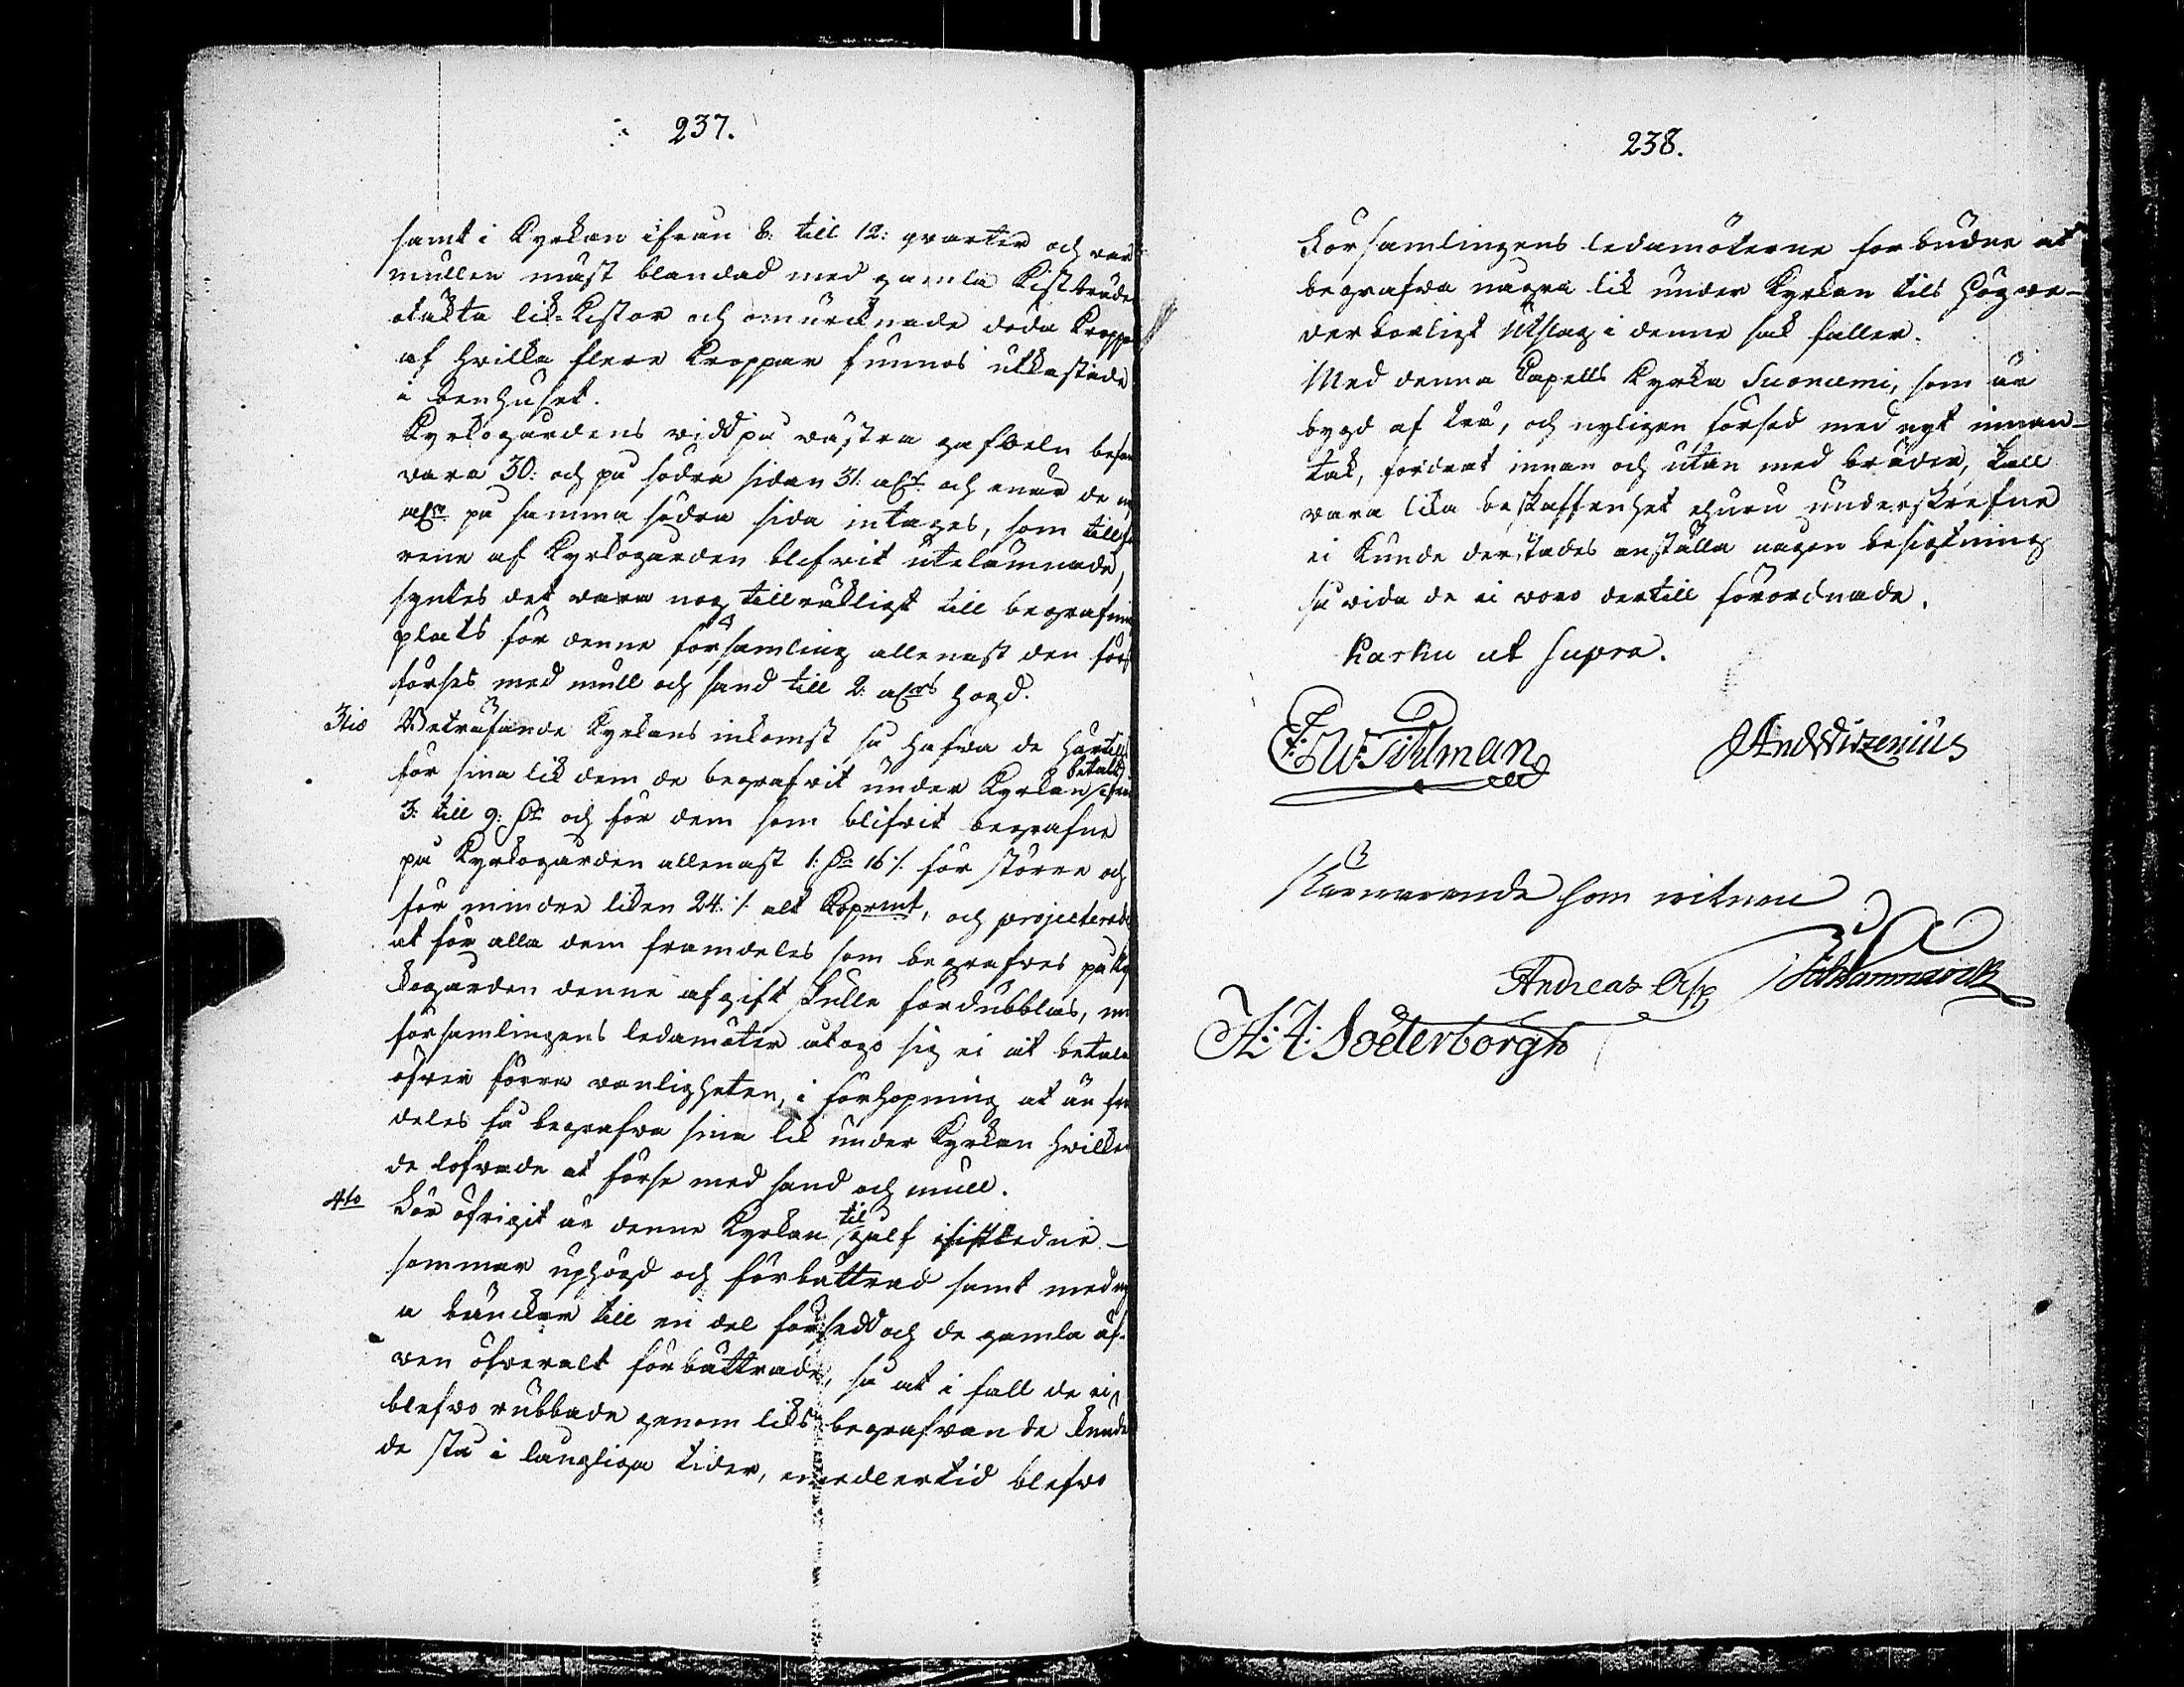 237.
samt i Kyrkan ifrån 8: till 12: qvarter och war
mullen mäst blandad med gamla Kistbräder
otäkta lik-Kistor och omurcknade döda Kroppar
af hvilka flere Kroppar funnos utkastade
i benhuset.
Kyrkogårdens vidd på wästra gafveln befans
vara 30: och på södra sidan 31. alr. och enär de
alnr på samma södra sida intages, som tillfö
rene af Kyrkogården blifvit utelämnade,
syntes det vara nog tillräkligt till begrafnings
plats för denne församling allenast den först
förses med mull och sand till 2: alnrs högd.
3tio Beträfande Kyrkans inkomst så hafva de härtills
för sina lik dem de begrafvit under Kyrkan betalt ifrån
3: till 9: Dr och för dem som blifvit begrafne
på Kyrkogården allenast 1: Dr 16 /. för större och
för mindre liken 24. /. alt Kopprmt, och projecterades
at för alla dem framdeles som begrafves på Kyr
kogården denne afgift skulle fördubblas, men
församlingens ledamöter åtogo sig ei at betala
öfver förra vanligheten, i förhopning at än fram
deles få begrafva sina lik under Kyrkan hvilken
de lofvade at förse med sand och mull.
4to För öfrigit är denne Kyrkan til golf sistledne
sommar uphögd och förbättrad samt med ny
a bäncker till en del försedd och de gamla äf-
ven öfveralt förbättrade, så at i fall de ei
blefvo rubbade genom liks begrafvande kunde
de stå i långliga tider, emedlertid blefvo
238.
Församlingens ledamöterne förbudne at
begrafva några lik under Kyrkan tils Högve-
derbörligt Utslag i denne sak faller.
Med denna Capells Kyrka Suoniemi, som är
bygd af trä, och nyligen försed med nyt innan-
tak, fordrat innan och utan med bräder, skall
vara lika beskaffenhet ehuru underskrefne
ei kunde derstädes anställa någon besigtning
så vida de ei voro dertill förordnade.
Karku ut supra.
F: W: Tihlman
And Wirzenius
Närvarande som vitnen
Andreas Asp
Joh Hammarck
H: A: Söderborgh